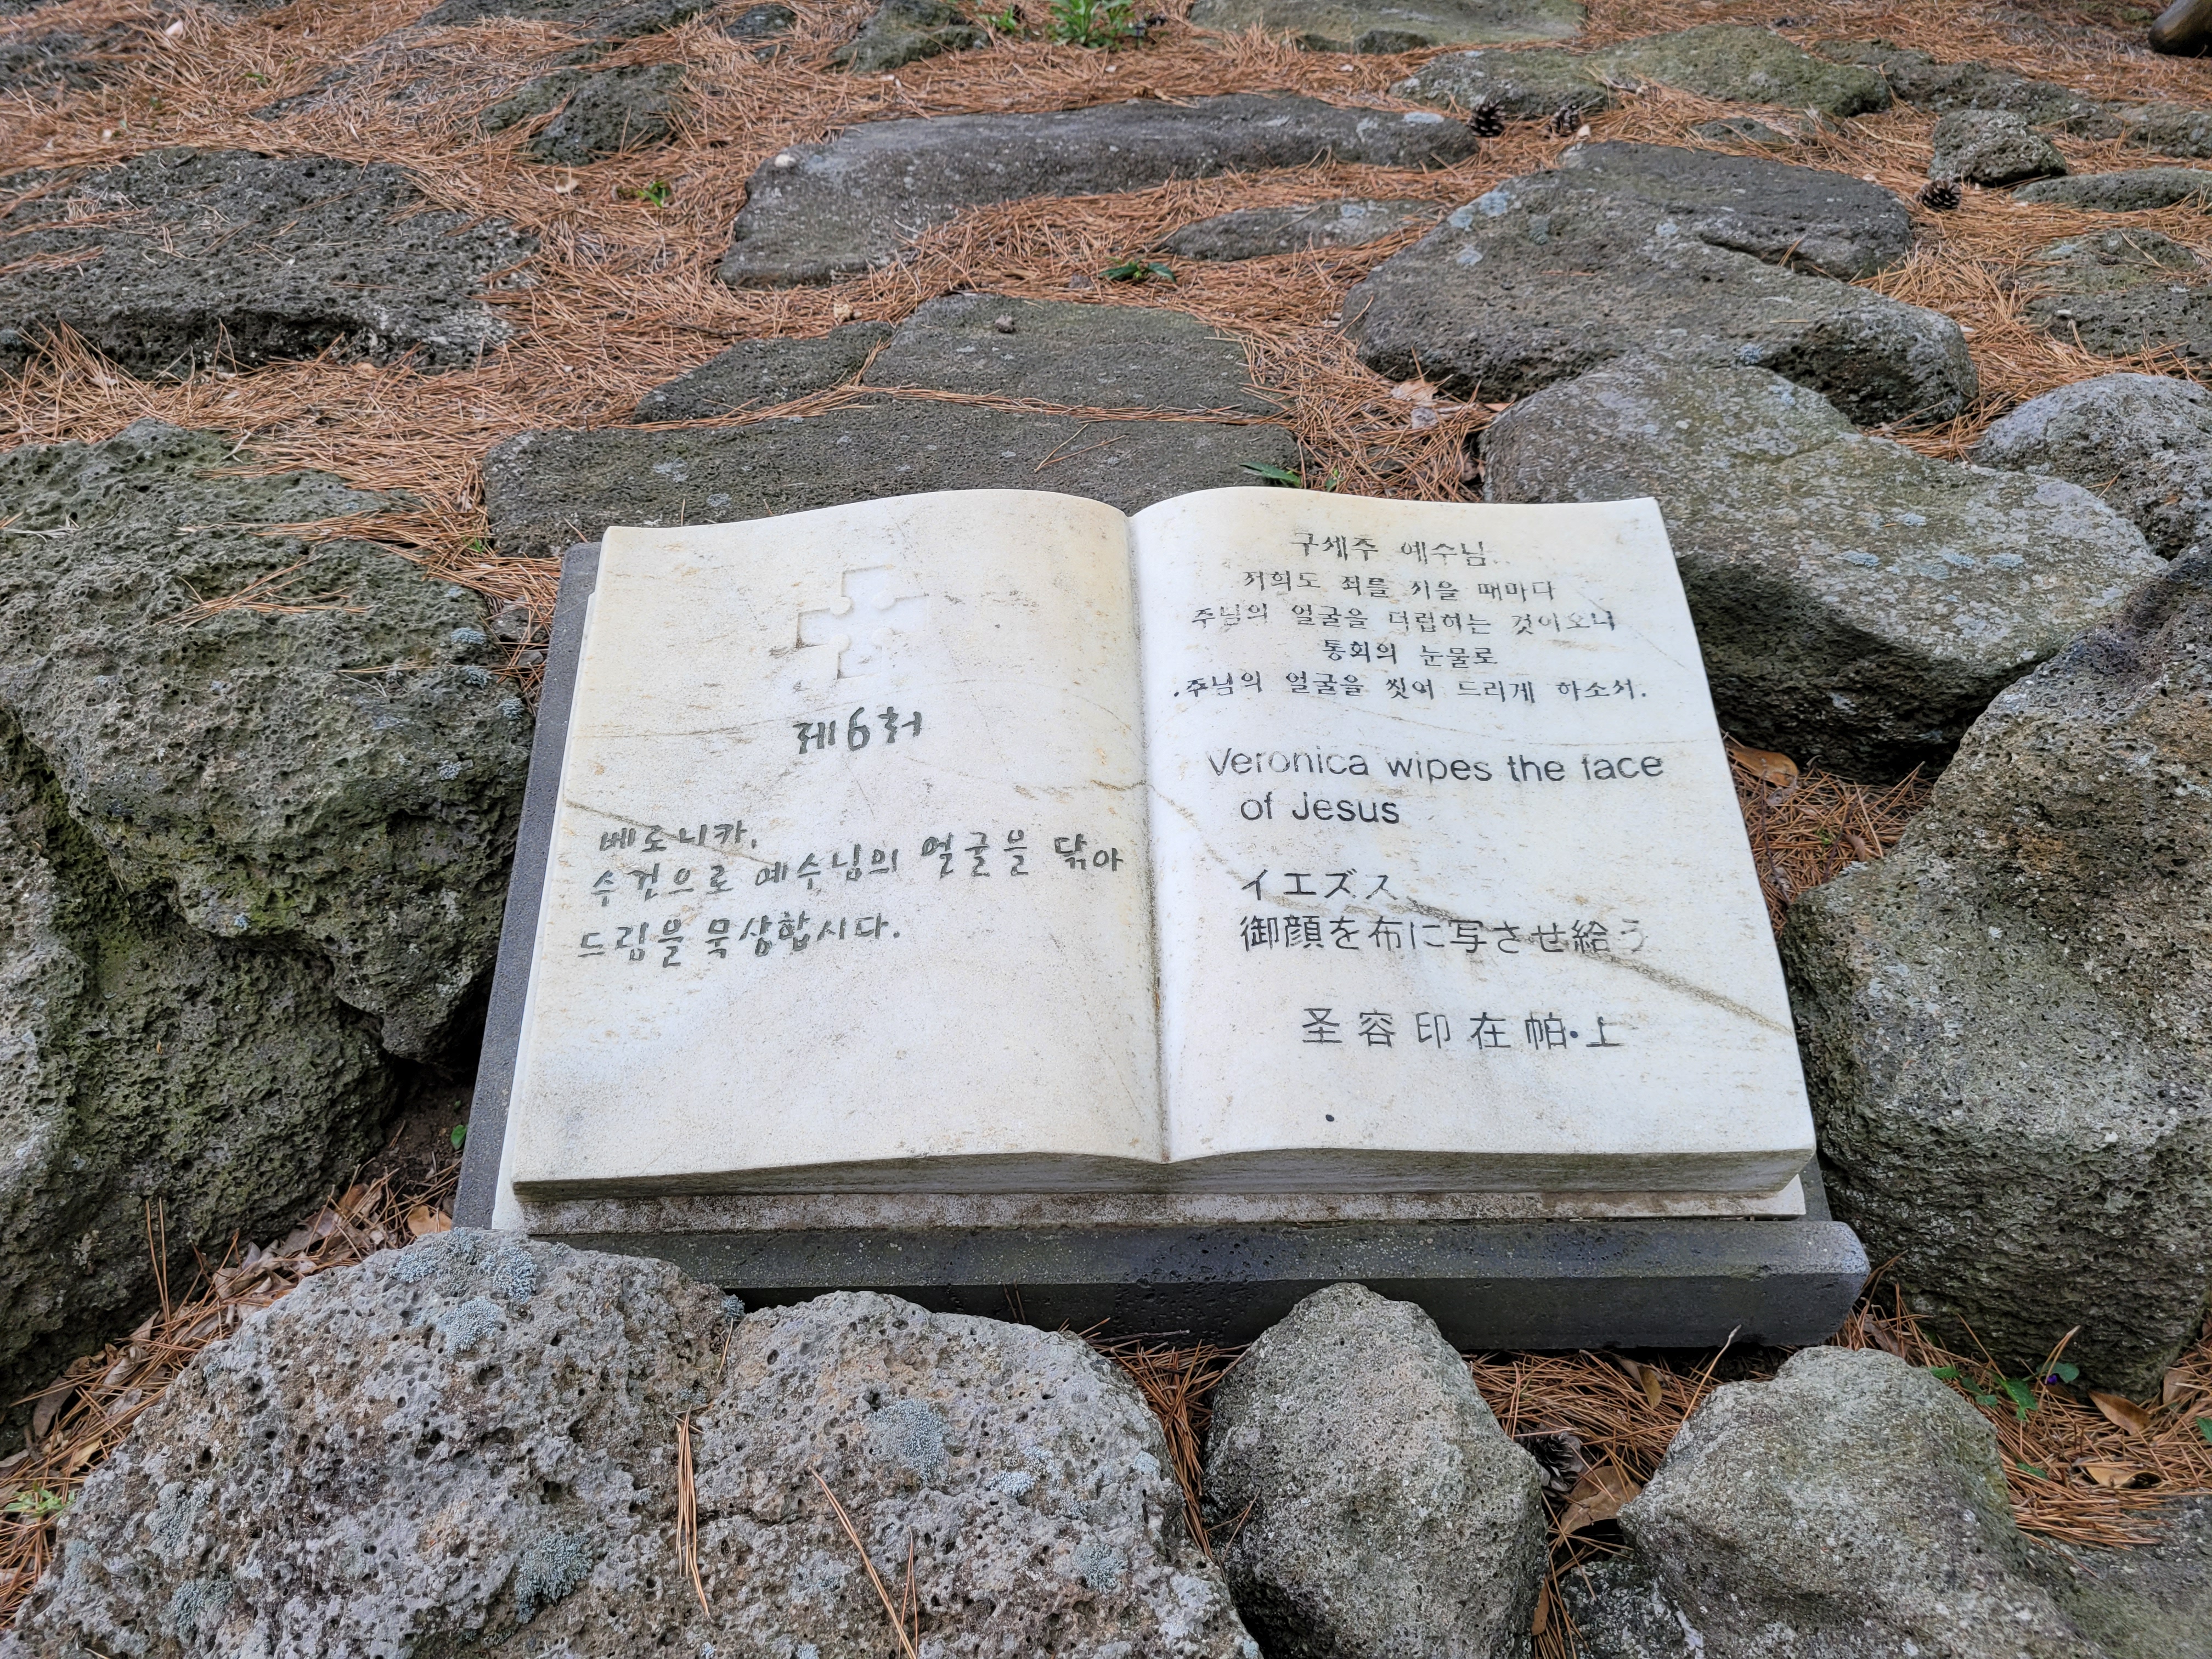 제6처
베로니카,
수건으로 예수님의 얼굴을 닦아
드림을 묵상합시다.
구세주 예수님..
저희도 죄를 지을 때마다
주님의 얼굴을 더럽히는 것이오니
통회의 눈물로
주님의 얼굴을 씻어 드리게 하소서.
Veronica wipes the face
of Jesus
イエズス、
御顔を布に写させ給う
圣容印在帕上